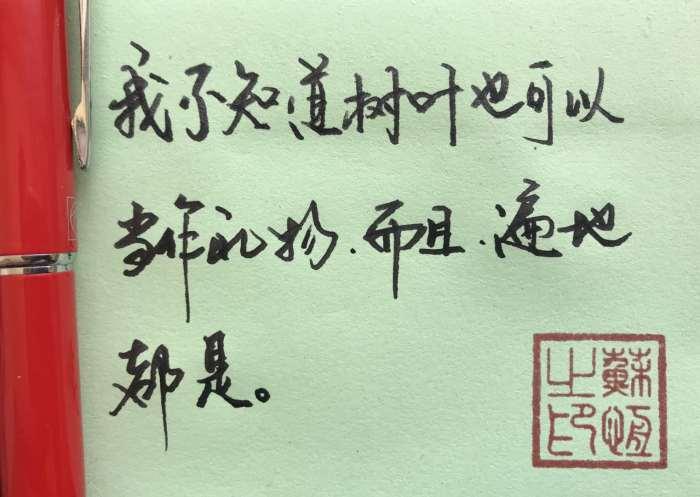 我不知道树叶也可以
当作礼物.而且.遍地
都是。
蘇恆之印